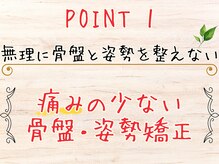 POINT 1
無理に骨盤と姿勢を整えない
痛みの少ない
骨盤・姿勢矯正